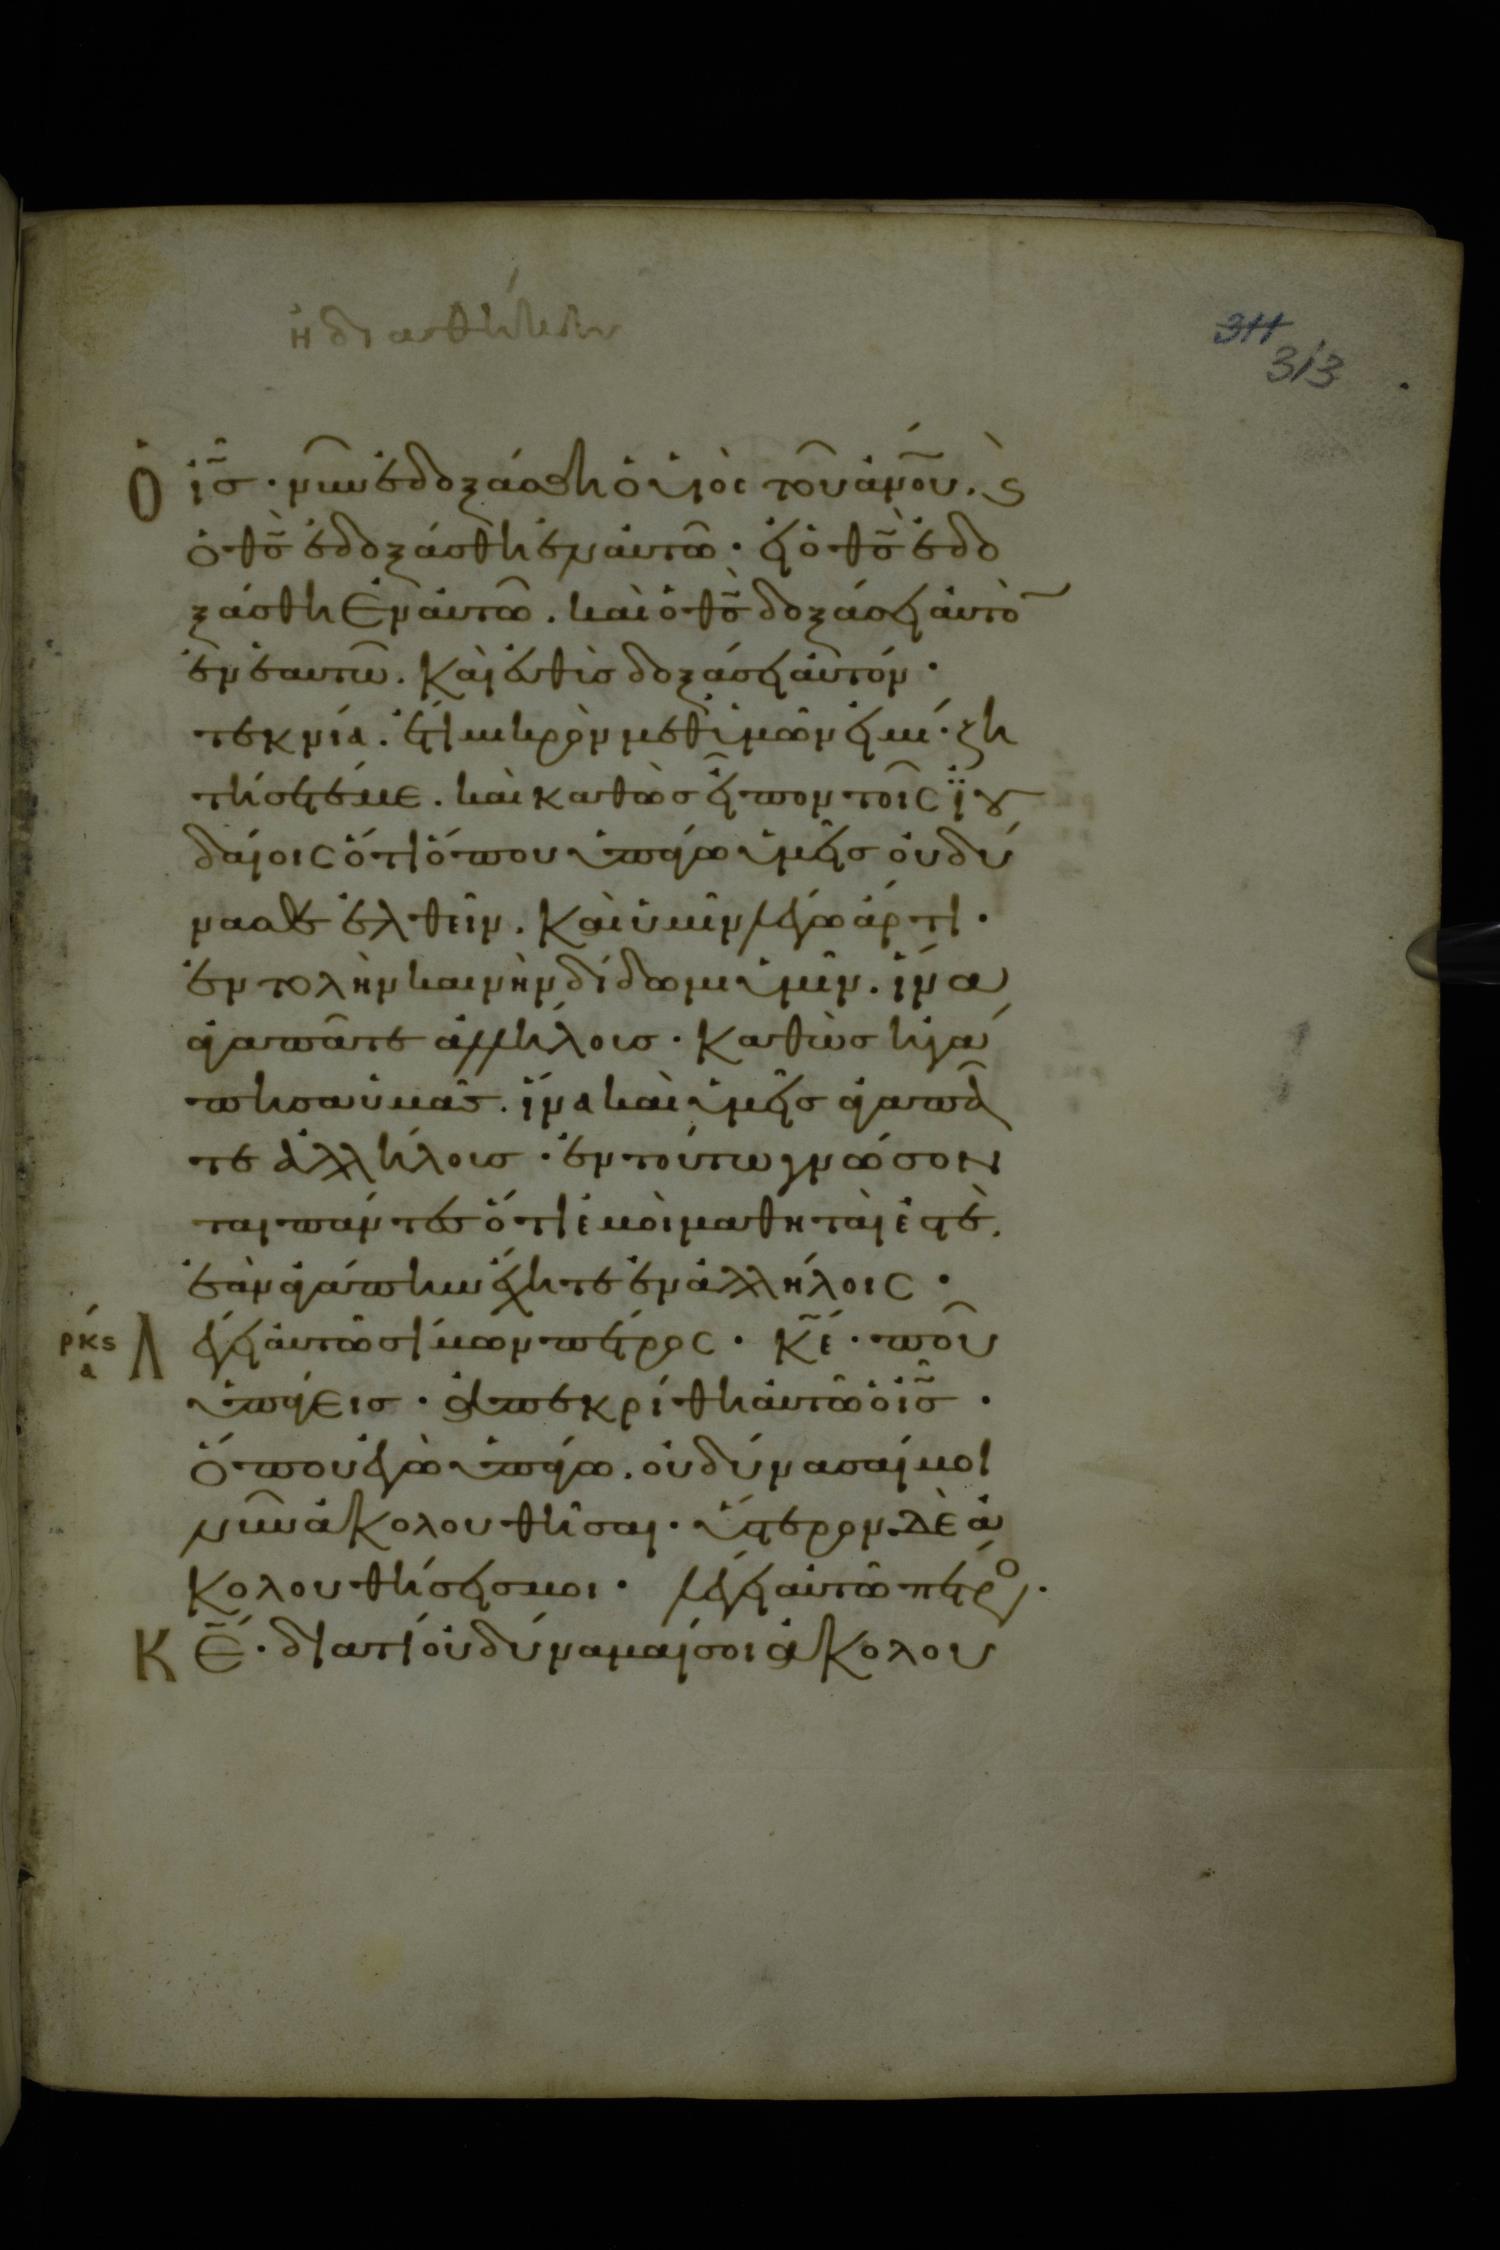 ἡ διαθήκη
311
313
Ὁ ἰς̅. νῦν ἐδοξάσθη ὁ υἱὸς τοῦ ἀν̅ου. ϛ̀
ὁ θς̅ ἐδοξάσθη ἐν αὐτῶ. εἰ ὁ θς̅ ἐδο
ξάσθη ἐν αὐτῶ. καὶ ὁ θς̅ δοξάσει αὐτὸ
ἐν ἑαυτῶ. Καὶ εὐθὺς δοξάσει αὐτόν.
τεκνία. ἔτι μικρὸν μεθ' ὑμῶν εἰμί. ζη
τήσετέ με. καὶ καθὼς εἶπον τοῖς ϊου
δαίοις ὅτι ὅπου ὑπάγω ὑμεῖς οὐ δύ
νασθε ἐλθεῖν. Καὶ ὑμῖν λέγω ἄρτι.
ἐντολὴν καινὴν δίδωμι ὑμῖν. ἵνα
ἀγαπᾶτε ἀλλήλοις. Καθὼς ἠγά
πησα ὑμᾶς. ἵνα καὶ ὑμεῖς ἀγαπᾶ
τε ἀλλήλοις. ἐν τούτω γνώσον
ται πάντες ὅτι ἐμοὶ μαθηταί ἐστὲ.
ἐὰν ἀγάπην ἔχητε ἐν ἀλλήλοις.
ρκϛ
α
Λέγει αὐτῶ σίμων πέτρος. κε̅. ποῦ
ὑπάγεις. ἀπεκρίθη αὐτῶ ὁ ἰς̅.
Ὅπου ἐγὼ ὑπάγω. οὐ δύνασαί μοι
νῦν ἀκολουθῆσαι. ὕστερον δὲ ἀ
κολουθήσεις μοι. λέγει αὐτῶ πέτρο.
Κε̅. διατί οὐ δύναμαί σοι ἀκολου